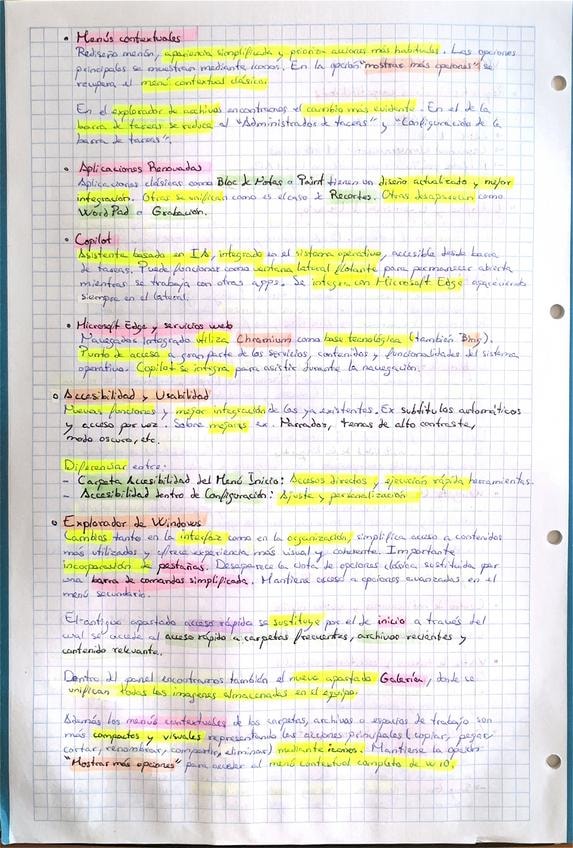 • Menús contextuales
Rediseño menún, apariencia simplificada y prioriza acciones más habituales. Las opciones
principales se muestran mediante iconos. En la opción "mostrar más opciones" se
recupera el menú contextual clásico.
En el explorador de archivos encontramos el cambio más evidente. En el de la
barra de tareas se reduce al "Administrador de tareas" y "Configuración de la
barra de tareas".
• Aplicaciones Renovadas
Aplicaciones clásicas como Bloc de Notas o Paint tienen un diseño actualizado y mejor
integración. Otras se unifican como es el caso de Recortes. Otras desaparecen como
WordPad o Grabación.
• Copilot
Asistente basado en IA, integrado en el sistema operativo, accesible desde barra
de tareas. Puede funcionar como ventana lateral flotante para permanecer abierta
mientras se trabaja con otras apps. Se integra con Microsoft Edge apareciendo
siempre en el lateral.
• Microsoft Edge y servicios web
Navegador integrado utiliza Chromium como base tecnológica (también Bing).
Punto de acceso a gran parte de los servicios, contenidos y funcionalidades del sistema
operativo. Copilot se integra para asistir durante la navegación.
o Accesibilidad y Usabilidad
Nuevas funciones y mejor integración de las ya existentes. Ex subtítulos automáticos
y acceso por voz. Sobre mejoras ex. Narrador, temas de alto contraste,
modo oscuro, etc.
Diferenciar entre:
- Carpeta Accesibilidad del Menú Inicio: Accesos directos y ejecución rápida herramientas.
- Accesibilidad dentro de Configuración: Ajuste y personalización
o Explorador de Windows
Cambios tanto en la interfaz como en la organización, simplifica acceso a contenidos
más utilizados y ofrece experiencia más visual y coherente. Importante
incorporación de pestañas. Desaparece la cinta de opciones clásica sustituida por
una barra de comandos simplificada. Mantiene acceso a opciones avanzadas en el
menú secundario.
El antiguo apartado acceso rápido se sustituye por el de inicio a través del
cual se accede al acceso rápido a carpetas frecuentes, archivos recientes y
contenido relevante.
Dentro del panel encontramos también el nuevo apartado Galería, donde se
unifican todas las imágenes almacenadas en el equipo.
Además los menús contextuales de las carpetas, archivos o espacios de trabajo son
más compactos y visuales representando las acciones principales (copiar, pegar
cortar, renombrar, compartir, eliminar) mediante iconos. Mantiene la opción
"Mostrar más opciones" para acceder al menú contextual completo de W10.